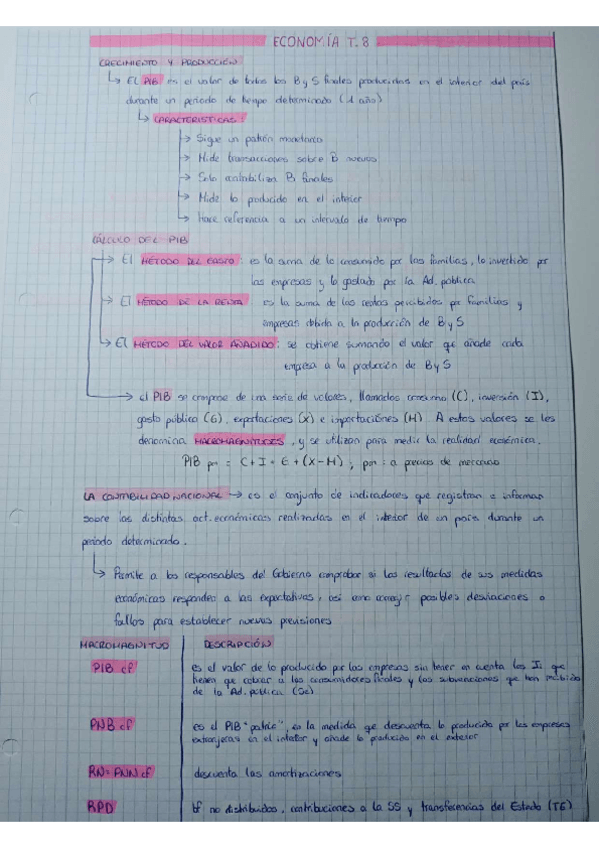 ECONOMÍA T.8
CRECIMIENTO Y PRODUCCIÓN
↳ El PIB es el valor de todos los B y S finales producidos en el interior del país
durante un periodo de tiempo determinado (1 año)
↳ CARACTERISTICAS:
→ Sigue un patrón monetario
→ Mide transacciones sobre B nuevos
→ Solo contabiliza B finales
→ Mide lo producido en el interior
→ Hace referencia a un intervalo de tiempo
CÁLCULO DEL PIB
→ El MÉTODO DEL GASTO: es la suma de lo consumido por las familias, lo invertido por
las empresas y lo gastado por la Ad. pública
→ El MÉTODO DE LA RENTA: es la suma de las rentas percibidas por familias y
empresas debida a la producción de B y S
→ El MÉTODO DEL VALOR AÑADIDO: se obtiene sumando el valor que añade cada
empresa a la producción de B y S
→ el PIB se compone de una serie de valores, llamados consumo (C), inversión (I),
gasto público (G), exportaciones (X) e importaciones (M). A estos valores se les
denomina MACROMAGNITUDES, y se utilizan para medir la realidad económica.
PIB pm = C + I + G + (X-M) ; pm: a precios de mercado
LA CONTABILIDAD NACIONAL → es el conjunto de indicadores que registran e informan
sobre las distintas act. económicas realizadas en el interior de un país durante un
periodo determinado.
↳ Permite a los responsables del Gobierno comprobar si los resultados de sus medidas
económicas responden a las expectativas, así como corregir posibles desviaciones o
fallos para establecer nuevas previsiones
MACROMAGNITUD DESCRIPCIÓN
PIB cf es el valor de lo producido por las empresas sin tener en cuenta los Ii que
tienen que cobrar a los consumidores finales y las subvenciones que han recibido
de la Ad. pública (Se)
PNB cf es el PIB "patrio", es la medida que descuenta lo producido por las empresas
extranjeras en el interior y añade lo producido en el exterior
RN = PNN cf descuenta las amortizaciones
RPD Bf no distribuidos, contribuciones a la SS y transferencias del Estado (TE)